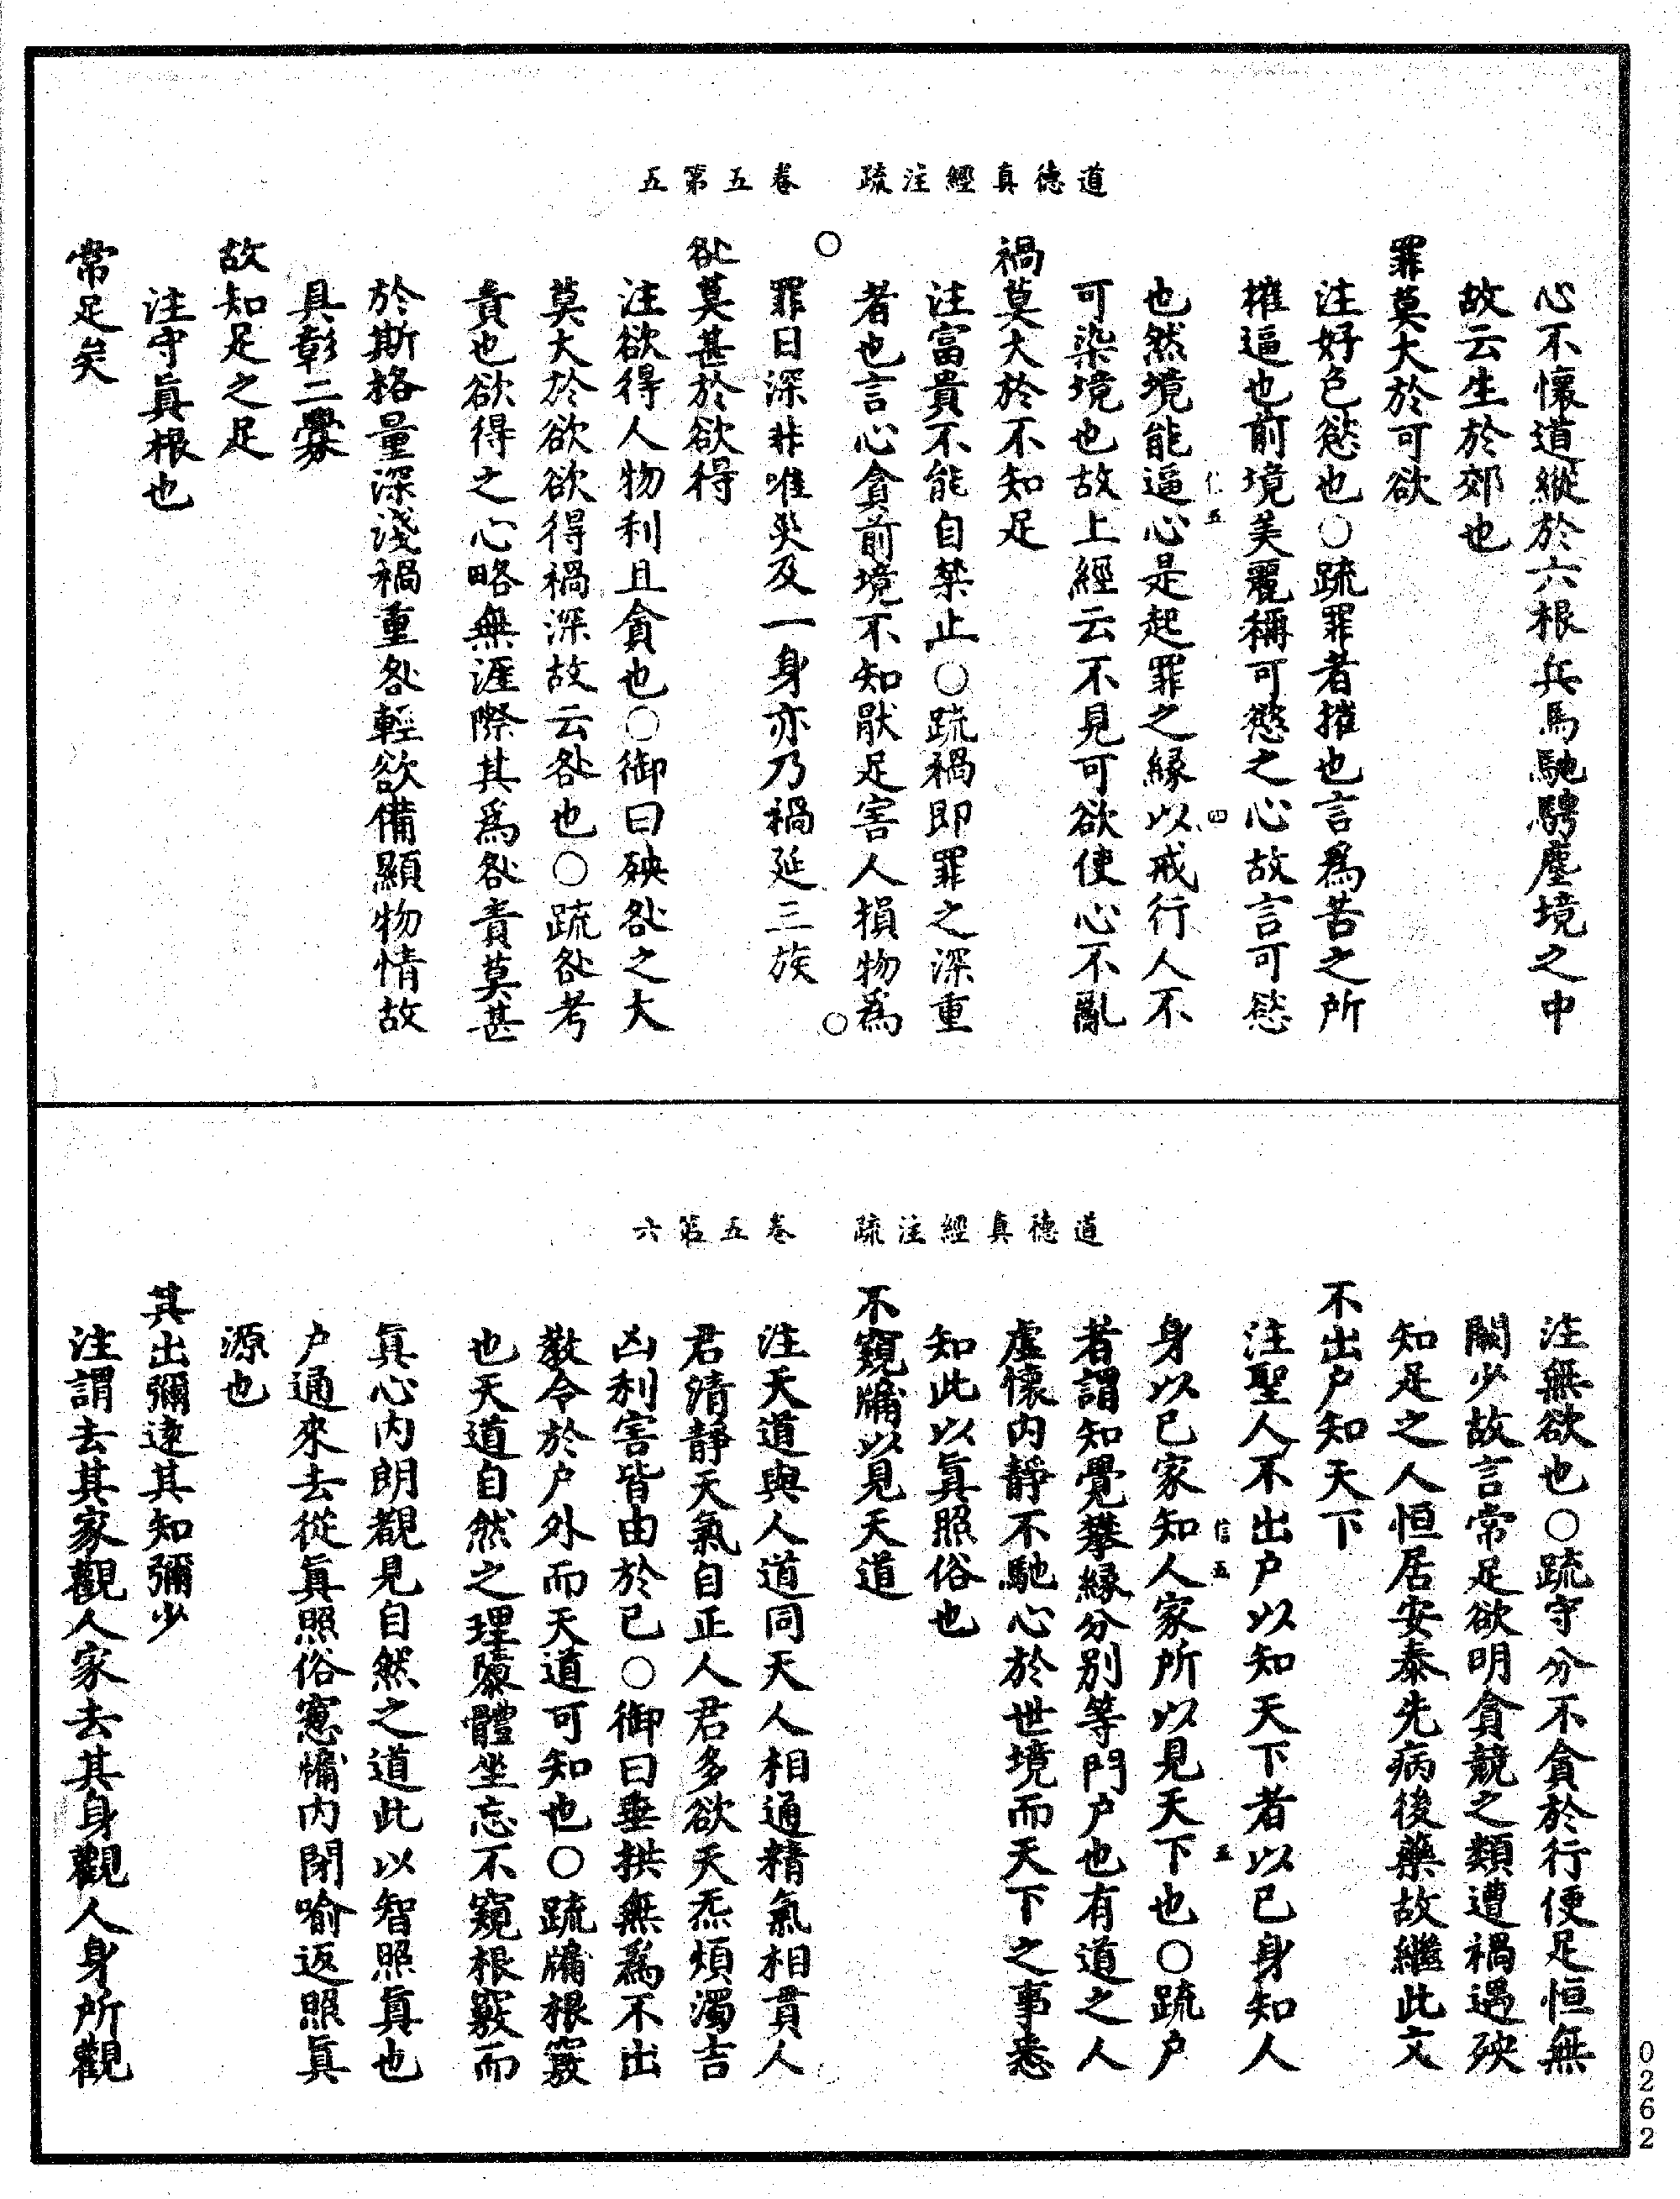 道德真經注疏　卷五第五
心不懷道縱於六根兵馬馳騁塵境之中
故云生於郊也
罪莫大於可欲
注好色慾也○疏罪者摧也言爲苦之所
摧逼也前境美麗稱可慾之心故言可慾
仁五　四
也然境能逼心是起罪之緣以戒行人不
可染境也故上經云不見可欲使心不亂
禍莫大於不知足
注富貴不能自禁止○疏禍即罪之深重
者也言心貪前境不知猒足害人損物爲
罪日深非唯災及一身亦乃禍延三族
咎莫甚於欲得
注欲得人物利且貪也○御曰殃咎之大
莫大於欲欲得禍深故云咎也○疏咎考
責也欲得之心略無涯際其爲咎責莫甚
於斯格量深淺禍重咎輕欲備顯物情故
具彰二釁
故知足之足
注守眞根也
常足矣
道德真經注疏　卷五第六
注無欲也○疏守分不貪於行便足恒無
闕少故言常足欲明貪競之類遭禍遇殃
知足之人恒居安泰先病後藥故繼此文
不出户知天下
注聖人不出户以知天下者以已身知人
信五　五
身以已家知人家所以見天下也○疏户
者謂知覺攀緣分別等門户也有道之人
虛懷内靜不馳心於世境而天下之事悉
知此以眞照俗也
不窺牖以見天道
注天道與人道同天人相通精氣相貫人
君清靜天氣自正人君多欲天炁煩濁吉
凶利害皆由於已○御曰垂拱無爲不出
教令於户外而天道可知也○疏牖根竅
也天道自然之理隳體坐忘不窺根竅而
眞心内朗覩見自然之道此以智照眞也
户通來去從眞照俗窓牖内閉喻返照眞
源也
其出彌遠其知彌少
注謂去其家觀人家去其身觀人身所觀
0262